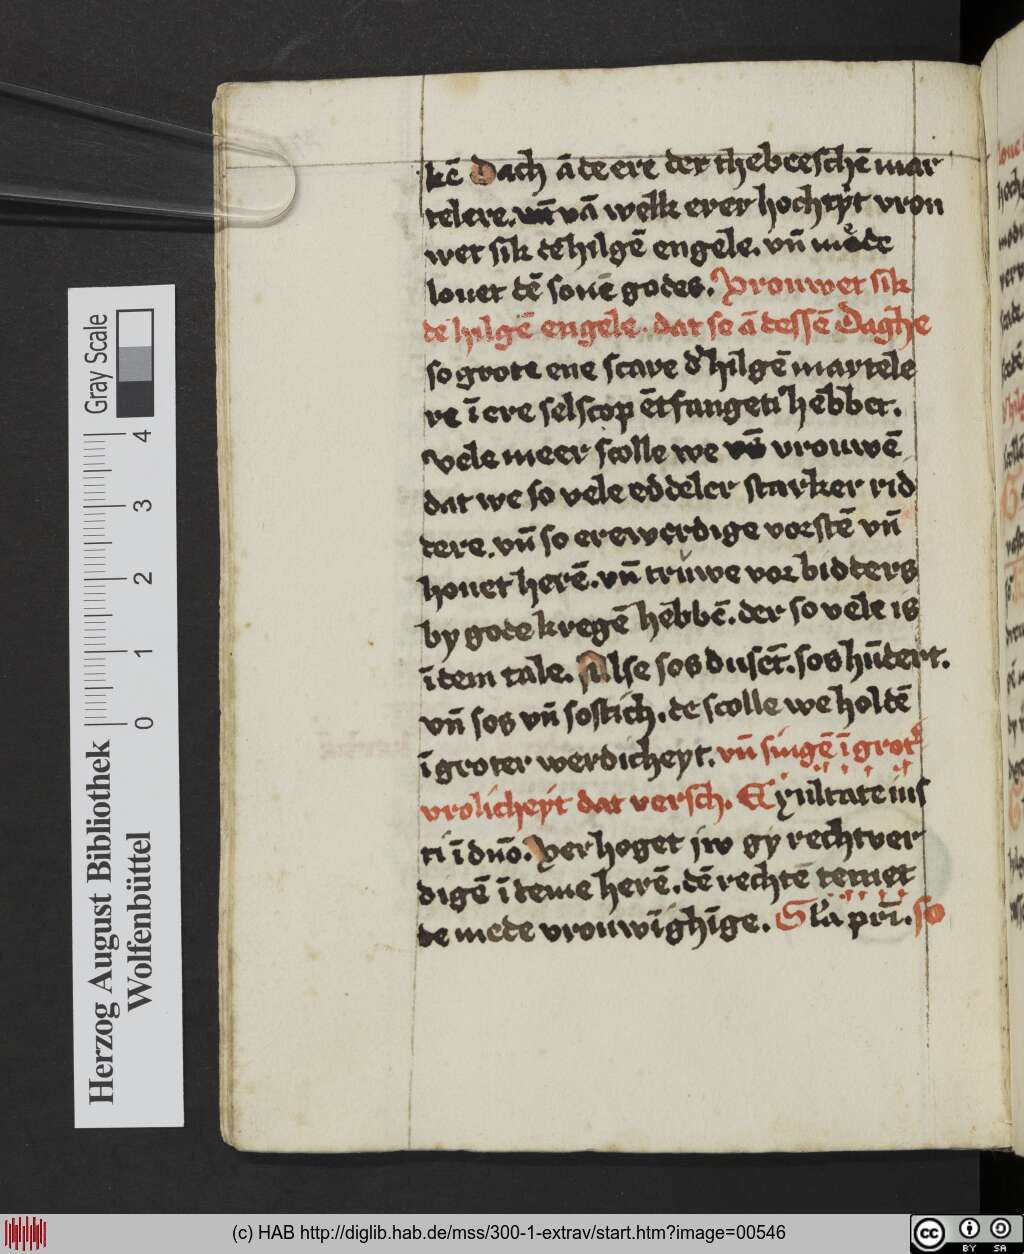 kē Dach ā de ere der thebeeschē mar
telere. vn̄ vā welk erer hochtyt vron
wet sik dē hilgē engele. vn̄ mede
louet dē sonē godes. Vrouwet sik
dē hilgē engele. dat se ā dessē Daghe
so grote ene scare d' hilgē martele
re ī ere selscop ētfangen hēbbet.
vele meer scolle we vrouwē
dat we so vele eddeler starker rid
dere. vn̄ so erewerdige vorstē vn̄
houet herē. vn̄ truwe vor bidders
by gode kregē hēbbē. der so vele is
ī dem tale. Alse sos dusēt. sos hūdert.
vn̄ sos vn̄ sostich. de scolle we holdē
ī groter werdicheyt. vn̄ singē ī grot'
vrolicheyt dat versch. Exultate ius
ti ī dn̄o. Verhoget jw gy rechtver
digē ī deme herē. dē rechtē temet
de mede vrouwīghīge. Gl'a pri. so
Herzog August Bibliothek
Wolfenbüttel
Gray Scale
0 1 2 3 4
(c) HAB http://diglib.hab.de/mss/300-1-extrav/start.htm?image=00546
cc BY SA